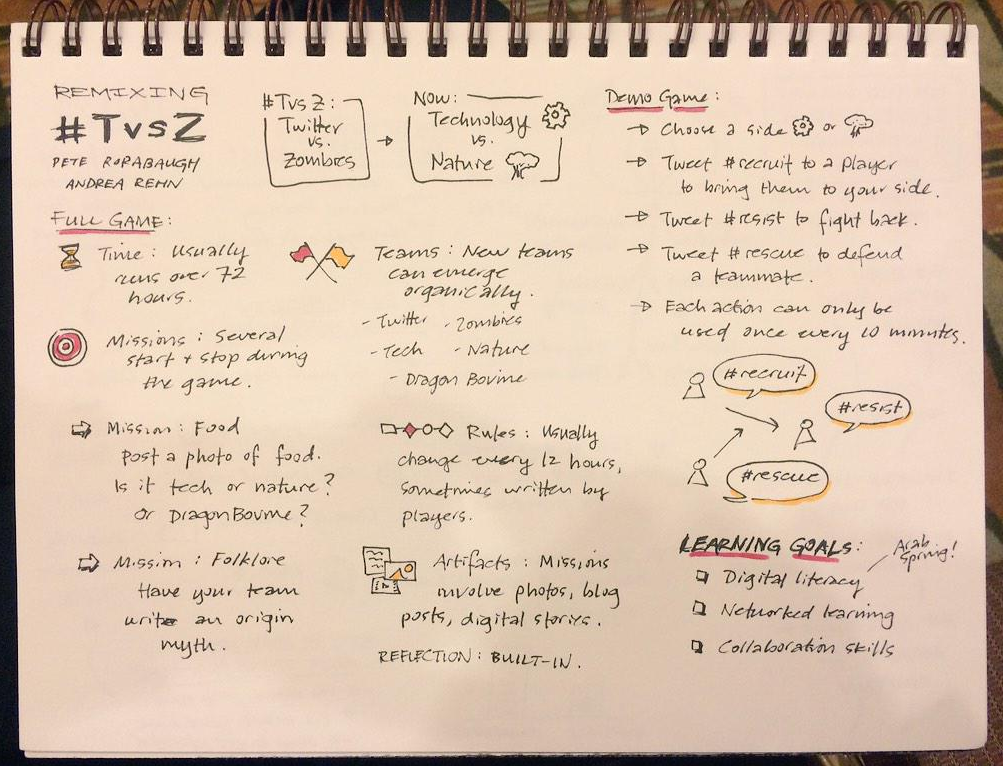 REMIXING
#TvsZ
PETE RORABAUGH
ANDREA REHN
#TvsZ:
Twitter
vs.
Zombies
Now:
Technology
vs.
Nature
FULL GAME:
Time: Usually
runs over 72
hours.
Missions: Several
start + stop during
the game.
Mission: Food
Post a photo of food.
Is it tech or nature?
Or DragonBovine?
Mission: Folklore
Have your team
write an origin
myth.
Teams: New teams
can emerge
organically.
- Twitter - Zombies
- Tech - Nature
- Dragon Bovine
Rules: Usually
change every 12 hours,
sometimes written by
players.
Artifacts: Missions
involve photos, blog
posts, digital stories.
REFLECTION: BUILT-IN.
Demo Game:
Choose a side or
Tweet #recruit to a player
to bring them to your side.
Tweet #resist to fight back.
Tweet #rescue to defend
a teammate.
Each action can only be
used once every 10 minutes.
#recruit
#resist
#rescue
LEARNING GOALS:
Arab
Spring!
Digital literacy
Networked learning
Collaboration skills